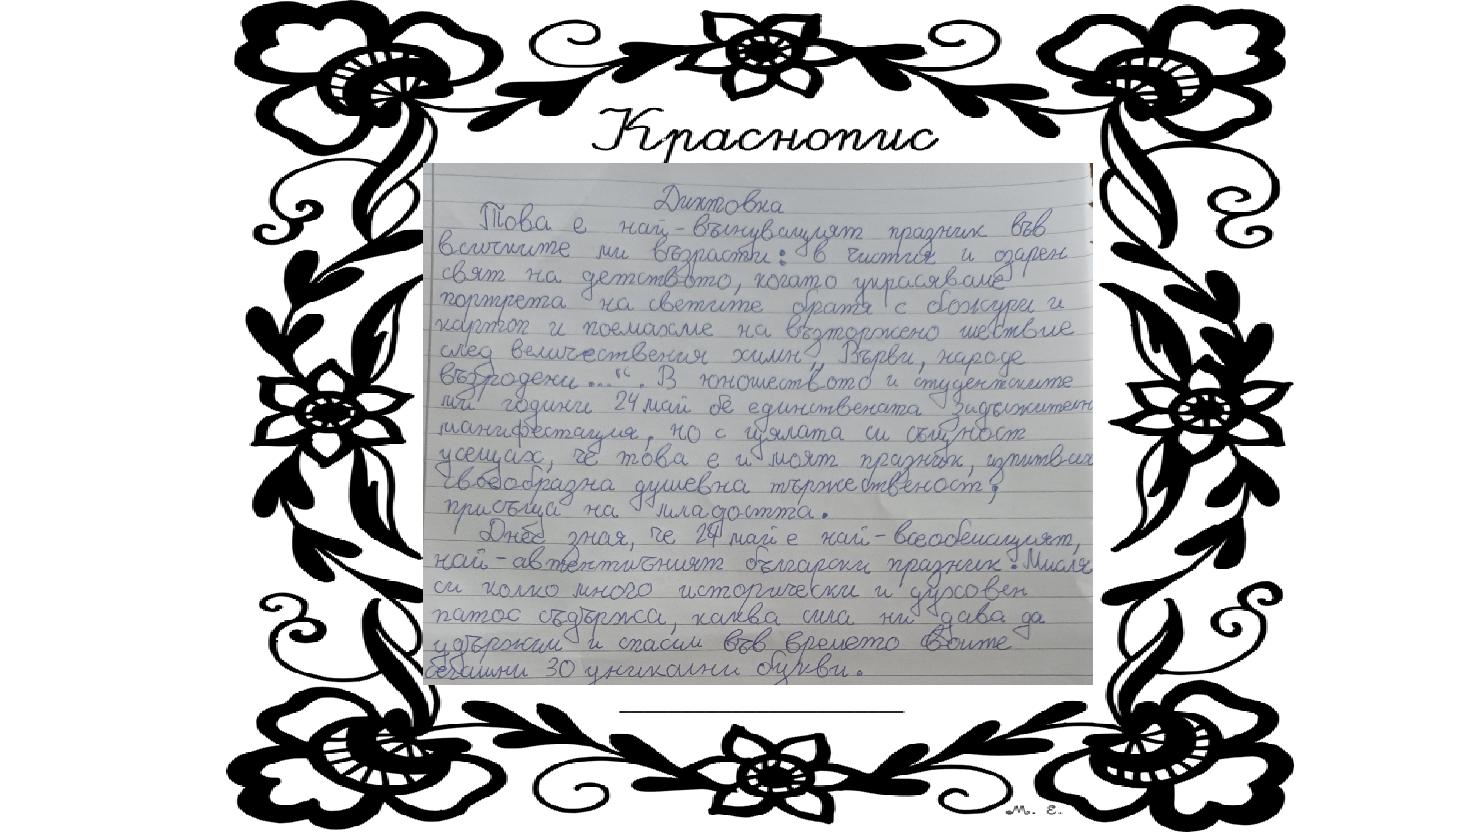 Краснопис
Диктовка
Това е най-вълнуващият празник във
всичките ми възрасти: в чистия и озарен
свят на детството, когато украсяваме
портрета на светите братя с божури и
картон и поемахме на възторжено шествие
след величествения химн „Върви, народе
възродени...“. В юношеството и студентските
ми години 24 май бе единствената задължителн
манифестация, но с цялата си същност
усещах, че това е и моят празник, изпитвах
своеобразна душевна тържественост,
присъща на младостта.
Днес зная, че 24 май е най-всеобемащият,
най-автентичният български празник. Мисля
си колко много исторически и духовен
патос съдържа, каква сила ни дава да
удържим и спасим във времето своите
30 уникални букви.
М. Е.